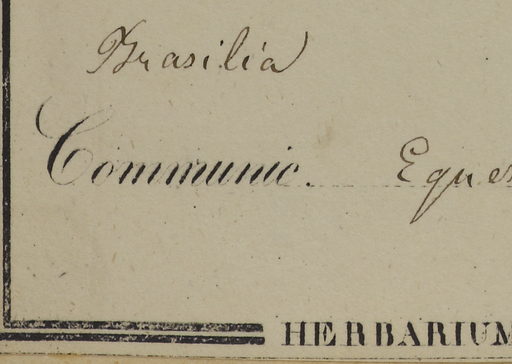 Brasilia
Communic. Eques
HERBARIUM